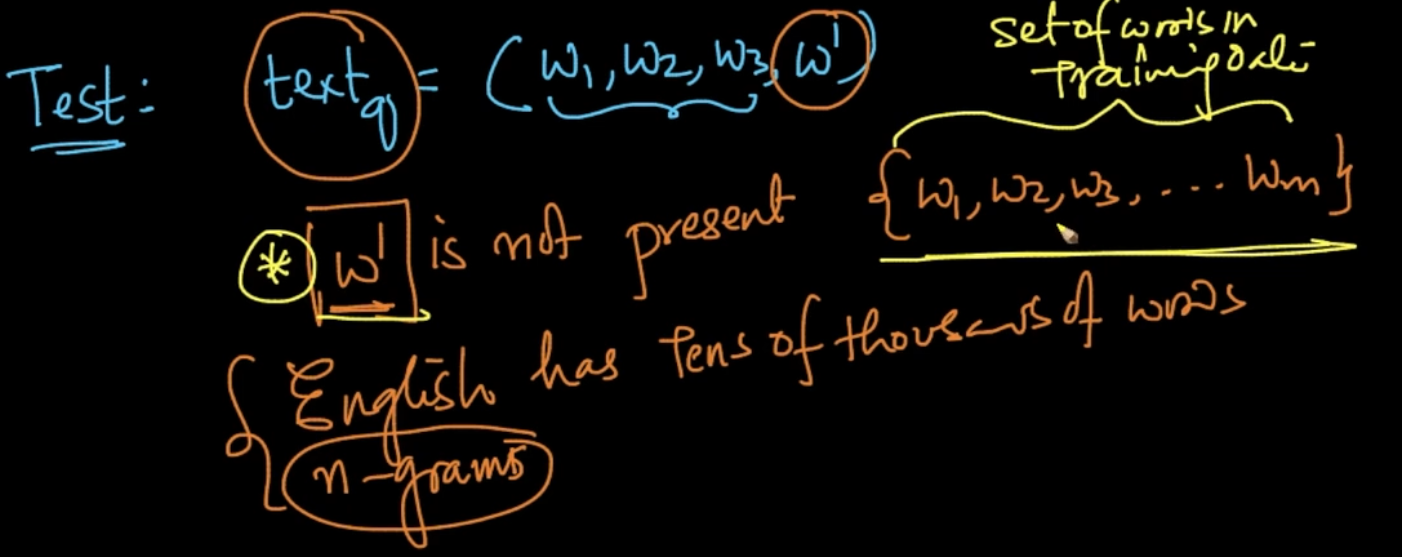 Test: text_q = (w₁, w₂, w₃, w')
set of words in
training data
* w' is not present {w₁, w₂, w₃, .... wₘ}
English has Tens of thousands of words
n-grams